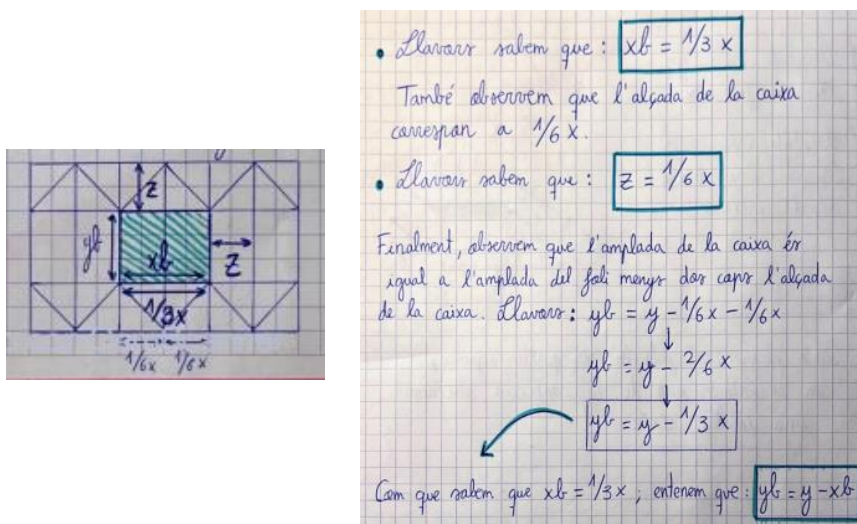 z
yb
xb
z
1/3x
1/6x 1/6x
• Llavors sabem que: xb = 1/3 x
També observem que l'alçada de la caixa
correspon a 1/6 x.
• Llavors sabem que: z = 1/6 x
Finalment, observem que l'amplada de la caixa és
igual a l'amplada del foli menys dos cops l'alçada
de la caixa. Llavors: yb = y - 1/6x - 1/6x
yb = y - 2/6 x
yb = y - 1/3 x
Com que sabem que xb = 1/3x; entenem que: yb = y - xb